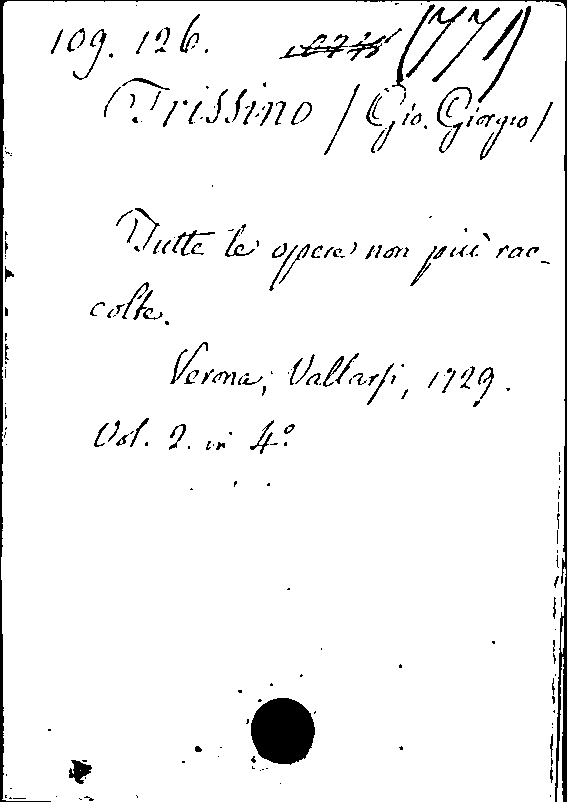 109. 126. (771)
Trissino / Gio. Giorgio /
Tutte le opere non più rac-
colte.
Verona, Vallarsi, 1729.
Vol. 2. in 4.º